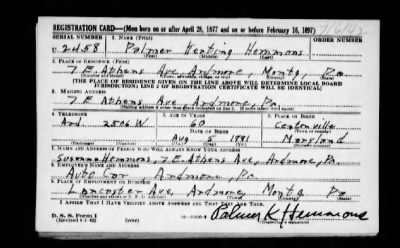 REGISTRATION CARD—(Men born on or after April 28, 1877 and on or before February 16, 1897)
SERIAL NUMBER 1. NAME (Print) ORDER NUMBER
U 2458 Palmer Keating Hemmons
(First) (Middle) (Last)
2. PLACE OF RESIDENCE (Print)
7 E Athens Ave Ardmore, Montg, Pa
(THE PLACE OF RESIDENCE GIVEN ON THE LINE ABOVE WILL DETERMINE LOCAL BOARD
JURISDICTION; LINE 2 OF REGISTRATION CERTIFICATE WILL BE IDENTICAL)
3. MAILING ADDRESS
7 E Athens Ave, Ardmore, Pa.
4. TELEPHONE 5. AGE IN YEARS 6. PLACE OF BIRTH
Ard 2506 W 60 Centerville
DATE OF BIRTH
Aug 5 1881 Maryland
7. NAME AND ADDRESS OF PERSON WHO WILL ALWAYS KNOW YOUR ADDRESS
Susanna Hemmons, 7 E. Athens Ave, Ardmore, Pa.
8. EMPLOYER'S NAME AND ADDRESS
Auto Car, Ardmore, Pa.
9. PLACE OF EMPLOYMENT OR BUSINESS
Lancaster Ave, Ardmore, Montg Pa
I AFFIRM THAT I HAVE VERIFIED ABOVE ANSWERS AND THAT THEY ARE TRUE.
D. S. S. Form 1
(Revised 4-1-42)
Palmer K Hemmons